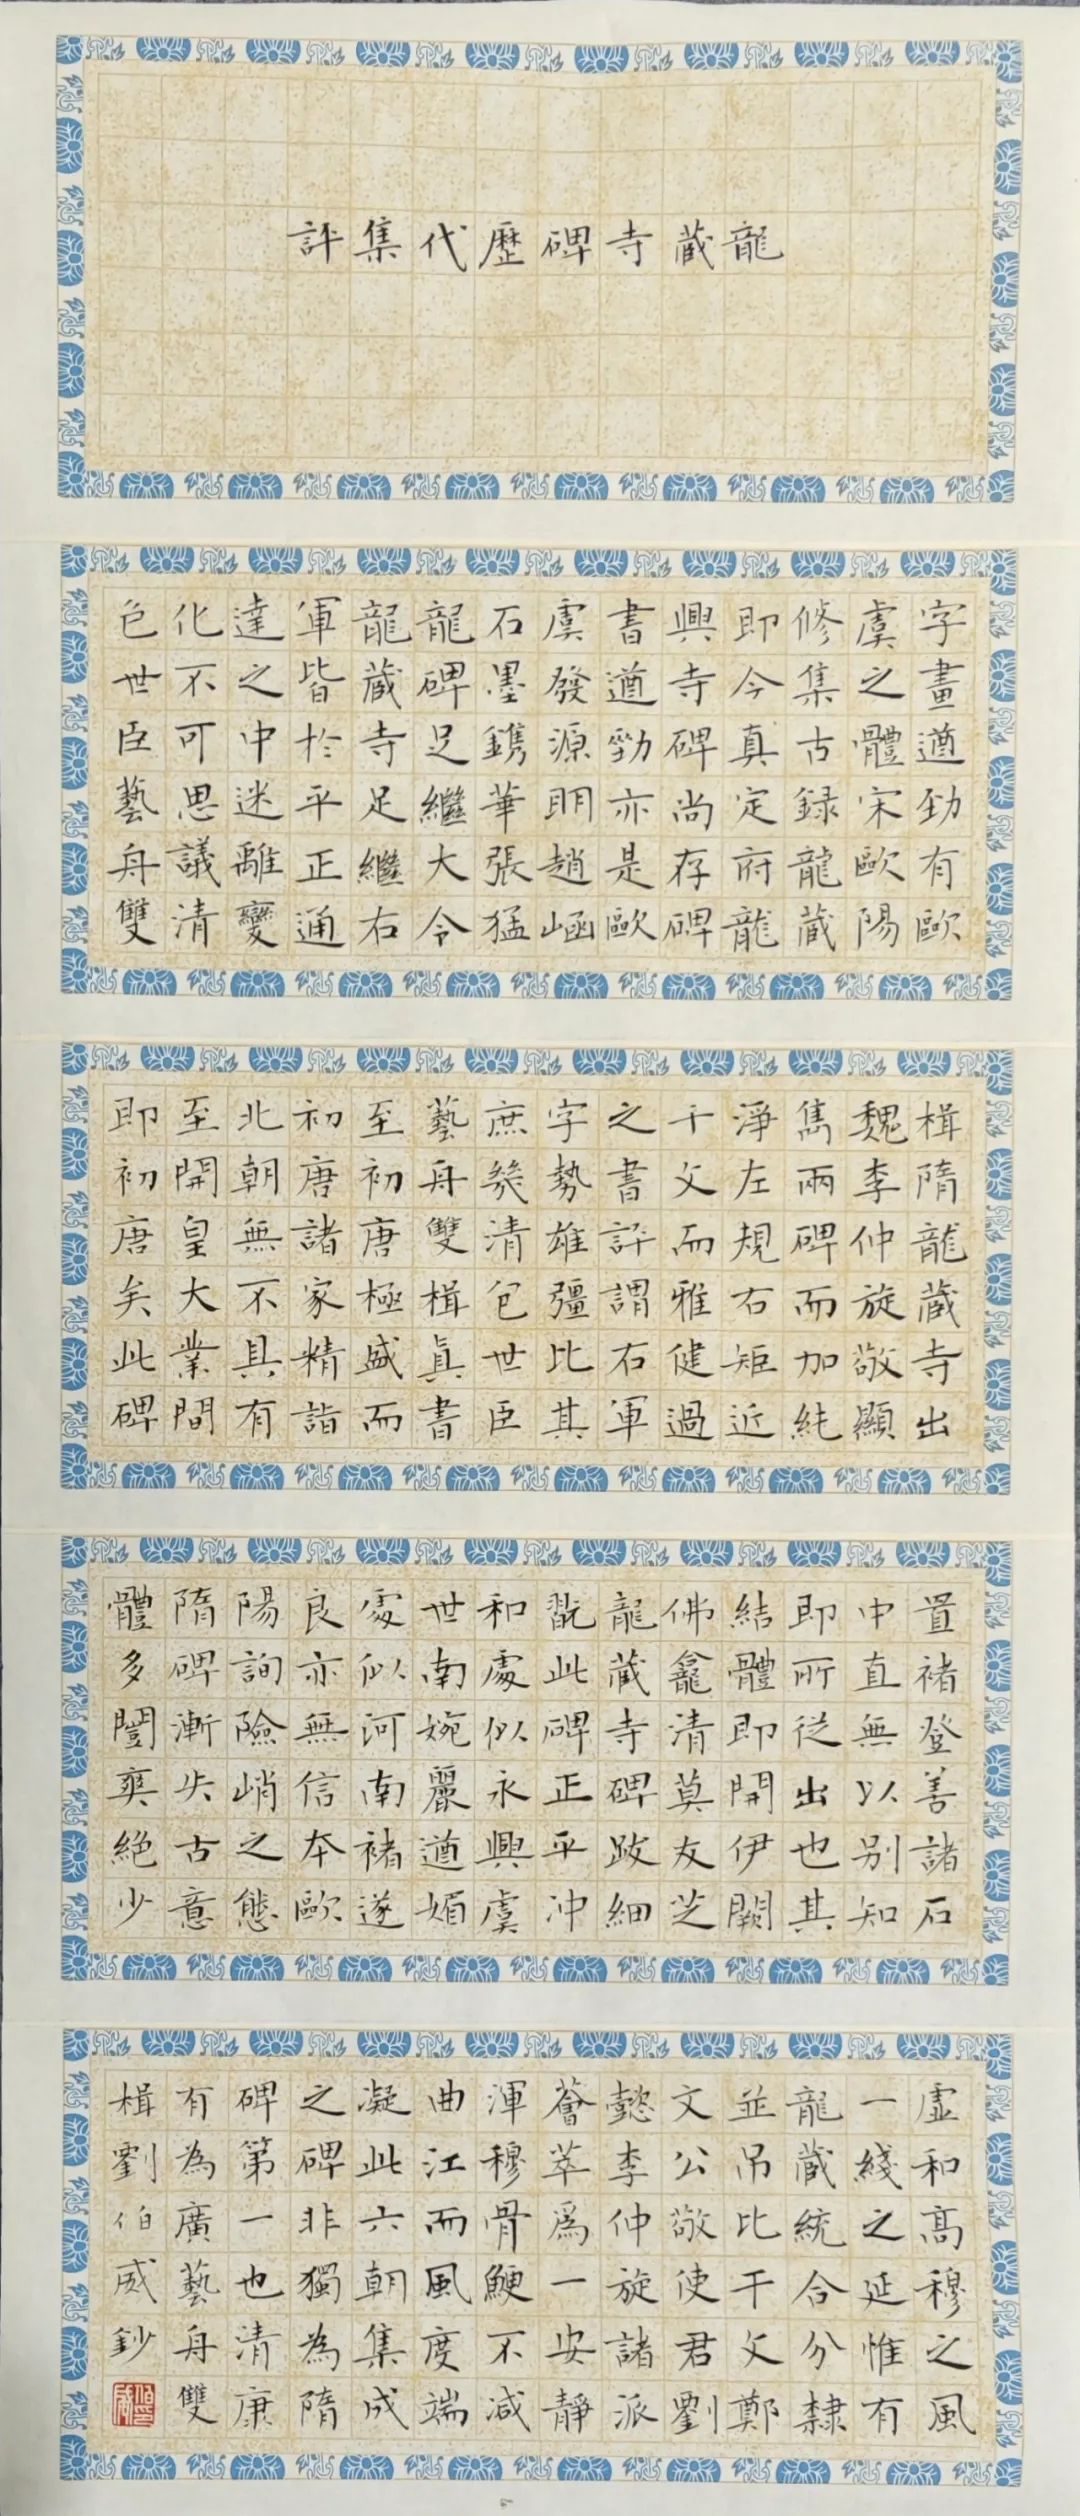 龍藏寺碑歷代集評
字畫遒勁有歐
虞之體宋歐陽
修集古録龍藏
即今真定府龍
興寺碑尚存碑
書遒勁亦是歐
虞發源明趙崡
石墨鐫華張猛
龍碑足繼大令
龍藏寺足繼右
軍皆於平正通
達之中迷離變
化不可思議清
包世臣藝舟雙
楫隋龍藏寺出
魏李仲旋敬顯
雋兩碑而加純
淨左規右矩近
千文而雅健過
之書評謂右軍
字勢雄彊比其
庶幾清包世臣
藝舟雙楫真書
至初唐極盛而
初唐諸家精詣
北朝無不具有
至開皇大業間
即初唐矣此碑
置褚登善諸石
中直無以別知
即所從出也其
結體即開伊闕
佛龕清莫友芝
龍藏寺碑跋細
翫此碑正平冲
和處似永興虞
世南婉麗遒媚
處似河南褚遂
良亦無信本歐
陽詢險峭之態
隋碑漸失古意
體多闓爽絕少
虛和高穆之風
一綫之延惟有
龍藏統合分隸
並吊比干文鄭
文公敬使君劉
懿李仲旋諸派
薈萃爲一安靜
渾穆骨鯁不減
曲江而風度端
凝此六朝集成
之碑非獨為隋
碑第一也清康
有為廣藝舟雙
楫劉伯威鈔